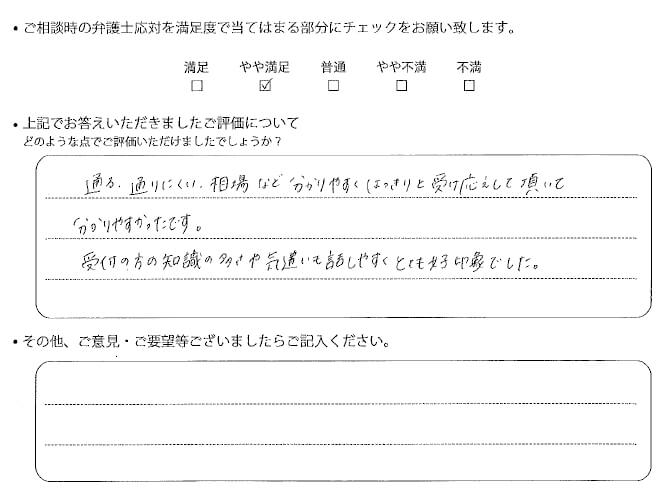 ・ご相談時の弁護士応対を満足度で当てはまる部分にチェックをお願い致します。
満足 やや満足 普通 やや不満 不満
☐ ☑ ☐ ☐ ☐
・上記でお答えいただきましたご評価について
どのような点でご評価いただけましたでしょうか？
通る、通りにくい、相場など分かりやすくはっきりと受け応えして頂いて
分かりやすかったです。
受付の方の知識の多さや気遣いも話しやすくとても好印象でした。
・その他、ご意見・ご要望等ございましたらご記入ください。